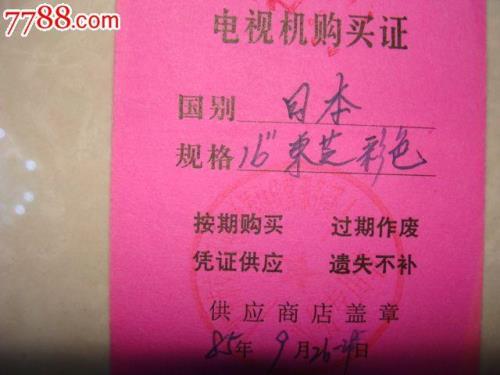 7788.com
电视机购买证
国别 日本
规格 16" 东芝彩色
按期购买 过期作废
凭证供应 遗失不补
供应商店盖章
85年9月26-28日